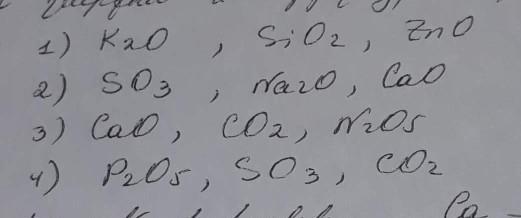 1) K2O , SiO2, ZnO
2) SO3 , Na2O, CaO
3) CaO, CO2, N2O5
4) P2O5, SO3, CO2